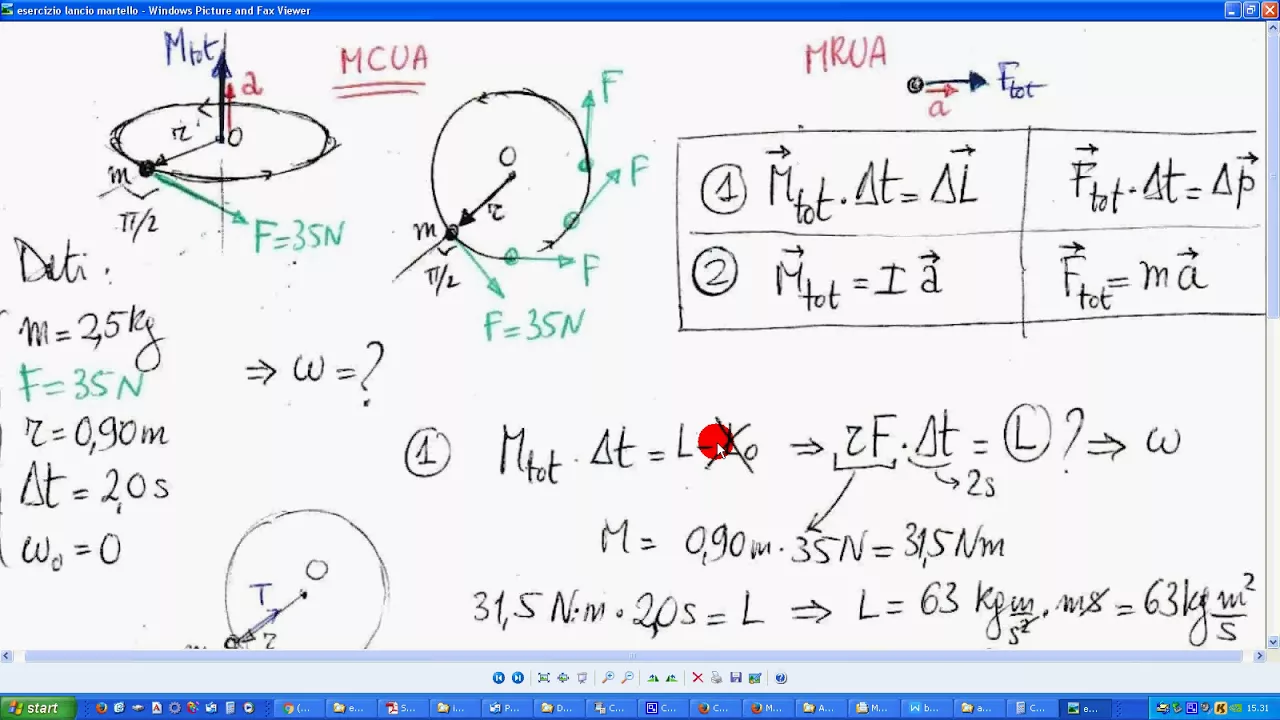 esercizio lancio martello - Windows Picture and Fax Viewer
Mtot
a
r
O
m
π/2
F=35N
MCUA
F
F
F
O
r
m
π/2
F=35N
MRUA
Ftot
a
① M⃗tot · Δt = ΔL⃗
F⃗tot · Δt = Δp⃗
② M⃗tot = I a⃗
F⃗tot = m a⃗
Dati:
m = 2,5kg
F = 35N
r = 0,90m
Δt = 2,0s
ω₀ = 0
⇒ ω = ?
① Mtot · Δt = L ⇒ rF · Δt = L ? ⇒ ω
2s
M = 0,90m · 35N = 31,5Nm
31,5 N·m · 2,0s = L ⇒ L = 63 kg m/s² · ms = 63 kg m²/s
O
T
r
m
start
15.31